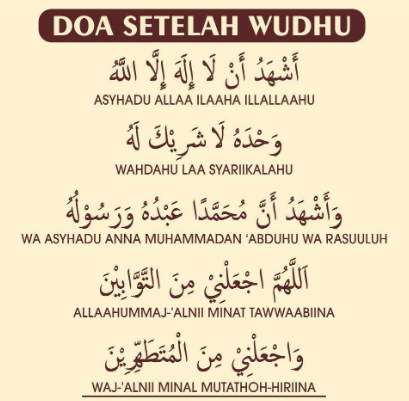 DOA SETELAH WUDHU
أَشْهَدُ أَنْ لَا إِلَهَ إِلَّا اللَّهُ
ASYHADU ALLAA ILAAHA ILLALLAAHU
وَحْدَهُ لَا شَرِيْكَ لَهُ
WAHDAHU LAA SYARIIKALAHU
وَأَشْهَدُ أَنَّ مُحَمَّدًا عَبْدُهُ وَرَسُوْلُهُ
WA ASYHADU ANNA MUHAMMADAN 'ABDUHU WA RASUULUH
اَللَّهُمَّ اجْعَلْنِيْ مِنَ التَّوَّابِيْنَ
ALLAAHUMMAJ-'ALNII MINAT TAWWAABIINA
وَاجْعَلْنِيْ مِنَ الْمُتَطَهِّرِيْنَ
WAJ-'ALNII MINAL MUTATHOH-HIRIINA